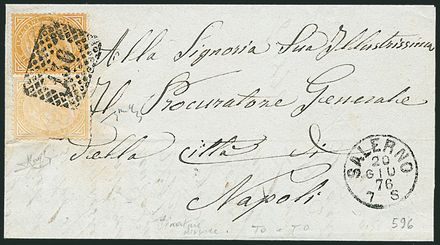 Alla Signoria Sua Illustrissima
Il Procuratore Generale
della città di
Napoli
SALERNO
20
GIU
76
7 S
596